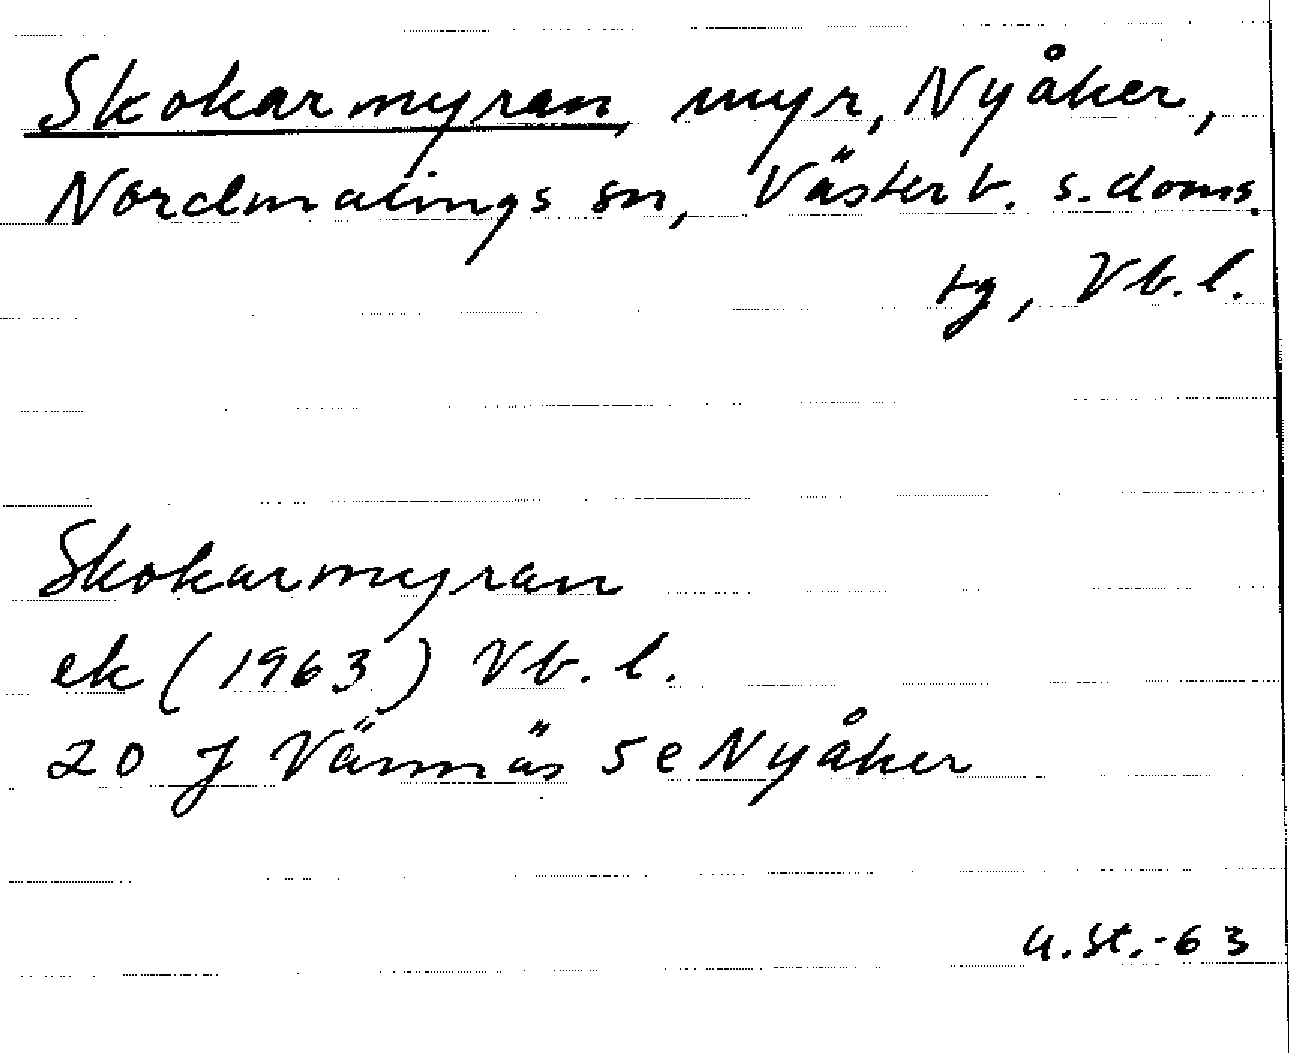 Skokarmyran, myr, Nyåker,
Nordmalings sn, Västerb. s. doms.
tg, Vb. l.
Skokarmyran
ek (1963) Vb. l.
20 J Vännäs 5e Nyåker
G. St. -63